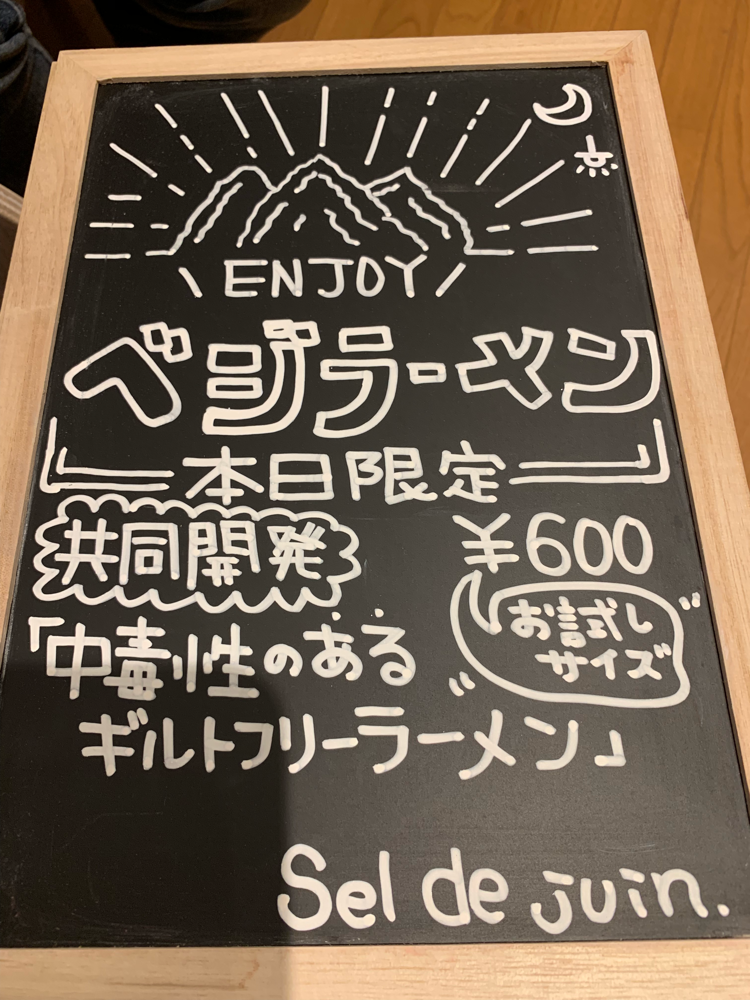 ENJOY
ベジラーメン
本日限定
共同開発
¥600
お試し
サイズ
「中毒性のある
ギルトフリーラーメン」
Sel de juin.